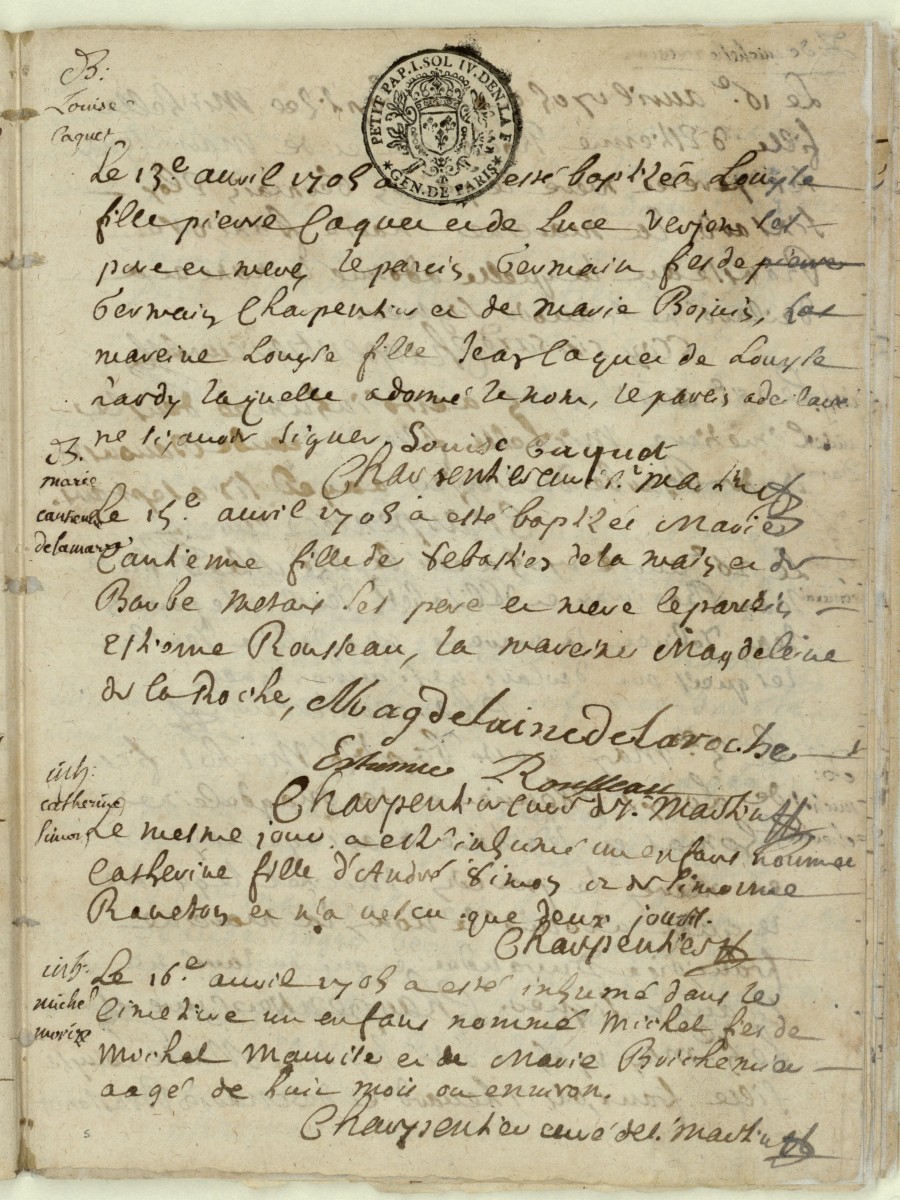 B:
Louise
Caquet
PETIT PAP. I. SOL IV. DEN. LA F
GEN. DE PARIS
Le 13e auril 1705 a esté baptizée Louyse
fille pierre Caquet et de Luce Verjon ses
pere et mere, le parein Germain fils de pierre
Germain Charpentier et de marie
mareine Louyse fille Jean Caquet de Louyse
hardy laquelle a donné le nom, le parein a declaré
ne sçauoir signer Louise Caquet
Charpentier curé de st. martin
B.
marie
cantienne
delamare
Le 15e. auril 1705 a esté baptizée Marie
Cantienne fille de Sebastien de la mare et de
Barbe Metais ses pere et mere le parein
Estienne Rousseau, la mareine Magdeleine
de la Roche, Magdelaine de Laroche
Estienne Rousseau
Charpentier curé de st. Martin
inh:
catherine
simon
Le mesme jour a esté inhumé un enfant nommee
Catherine fille d'André Simon et de simonne
et n'a vescu que deux jours.
Charpentier
inh.
michel
morize
Le 16e auril 1705 a esté inhumé dans le
Cimetiere un enfant nommé Michel fils de
Michel Maurise et de Marie
aagé de huit mois ou enuiron.
Charpentier curé de st. Martin
5